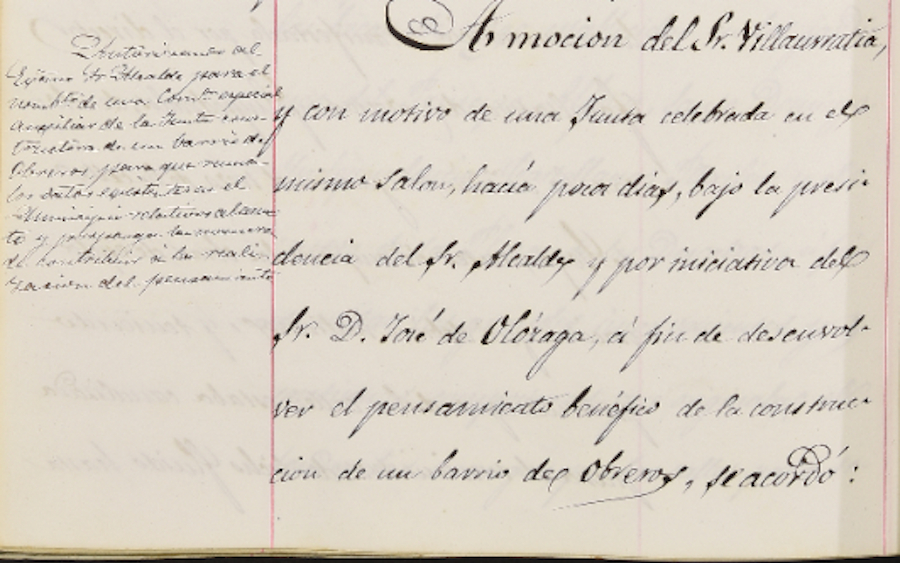 Autorizando al
Excmo Sr Alcalde para el
nombto de una Comon especial
auxiliar de la Junta cons-
tructora de un barrio de
Obreros, para que reuna
los datos que existan en el
Municipio relativos al asun-
to y proponga la manera
de contribuir á la reali-
zacion del pensamiento
A mocion del Sr. Villaurrutia,
y con motivo de una Junta celebrada en el
mismo salon, hacía pocos dias, bajo la presi-
dencia del Sr. Alcalde y por iniciativa del
Sr. D. José de Olózaga, á fin de desenvol-
ver el pensamiento benéfico de la construc-
cion de un barrio de Obreros, se acordó: